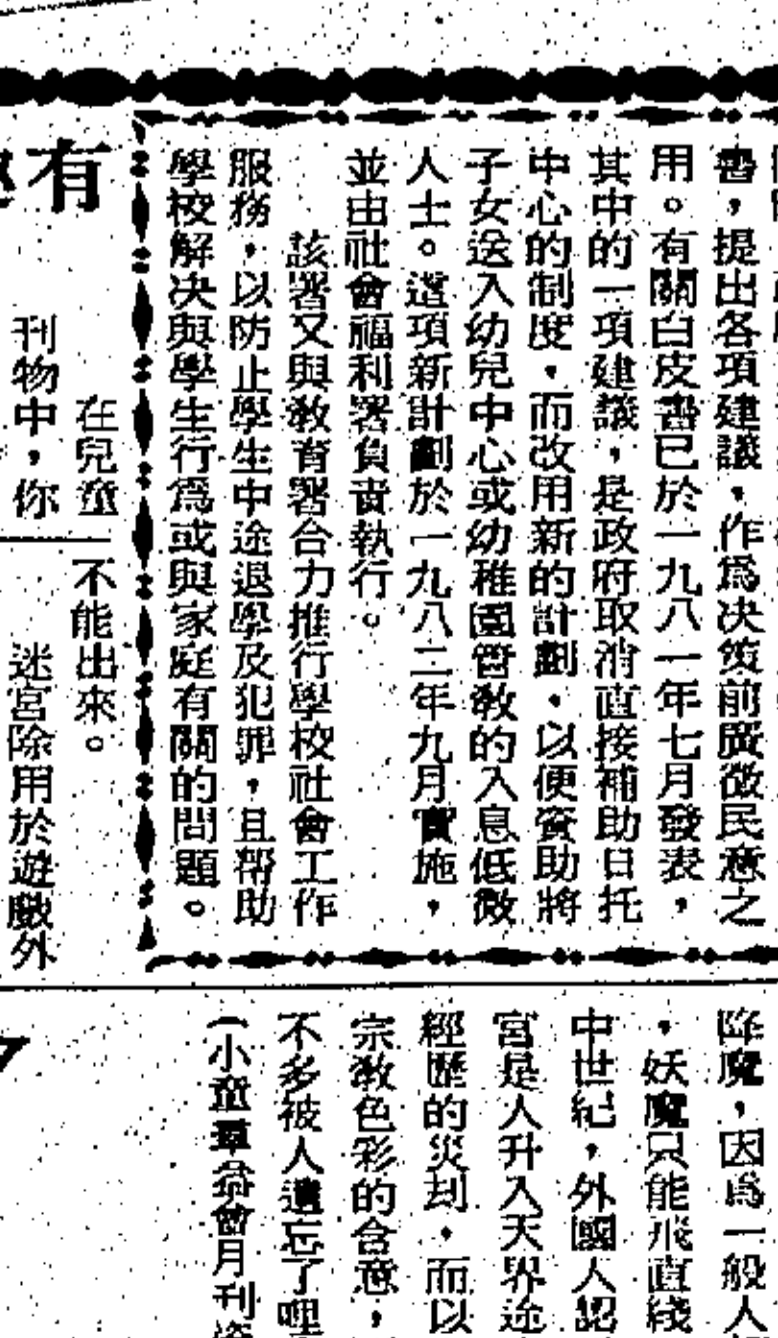 書，提出各項建議，作為决策前廣徵民意之
用。有關白皮書已於一九八一年七月發表，
其中的一項建議，是政府取消直接補助日托
中心的制度，而改用新的計劃，以便資助將
子女送入幼兒中心或幼稚園管教的入息低微
人士。這項新計劃於一九八二年九月實施，
並由社會福利署負責執行。
該署又與教育署合力推行學校社會工作
服務，以防止學生中途退學及犯罪，且幫助
學校解决與學生行為或與家庭有關的問題。
有
在兒童
刊物中，你
不能出來。
迷宮除用於遊戲外
降魔，因為一般人
，妖魔只能飛直綫
中世紀，外國人認
宮是人升入天界途
經歷的災刧，而以
宗教色彩的含意，
不多被人遺忘了哩
（小童羣益會月刊